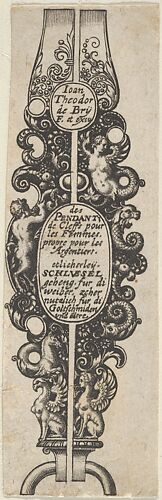 Ioan
Theodor
de Brÿ
F. et excu
des
PENDANTZ
de Cleffs pour
les Femmes
propre pour les
Argentiers.
etlicherleÿ
SCHLVSSEL
geheng. fur di
weiber, sehr
nutzlich fur di
Goltschmiden
und